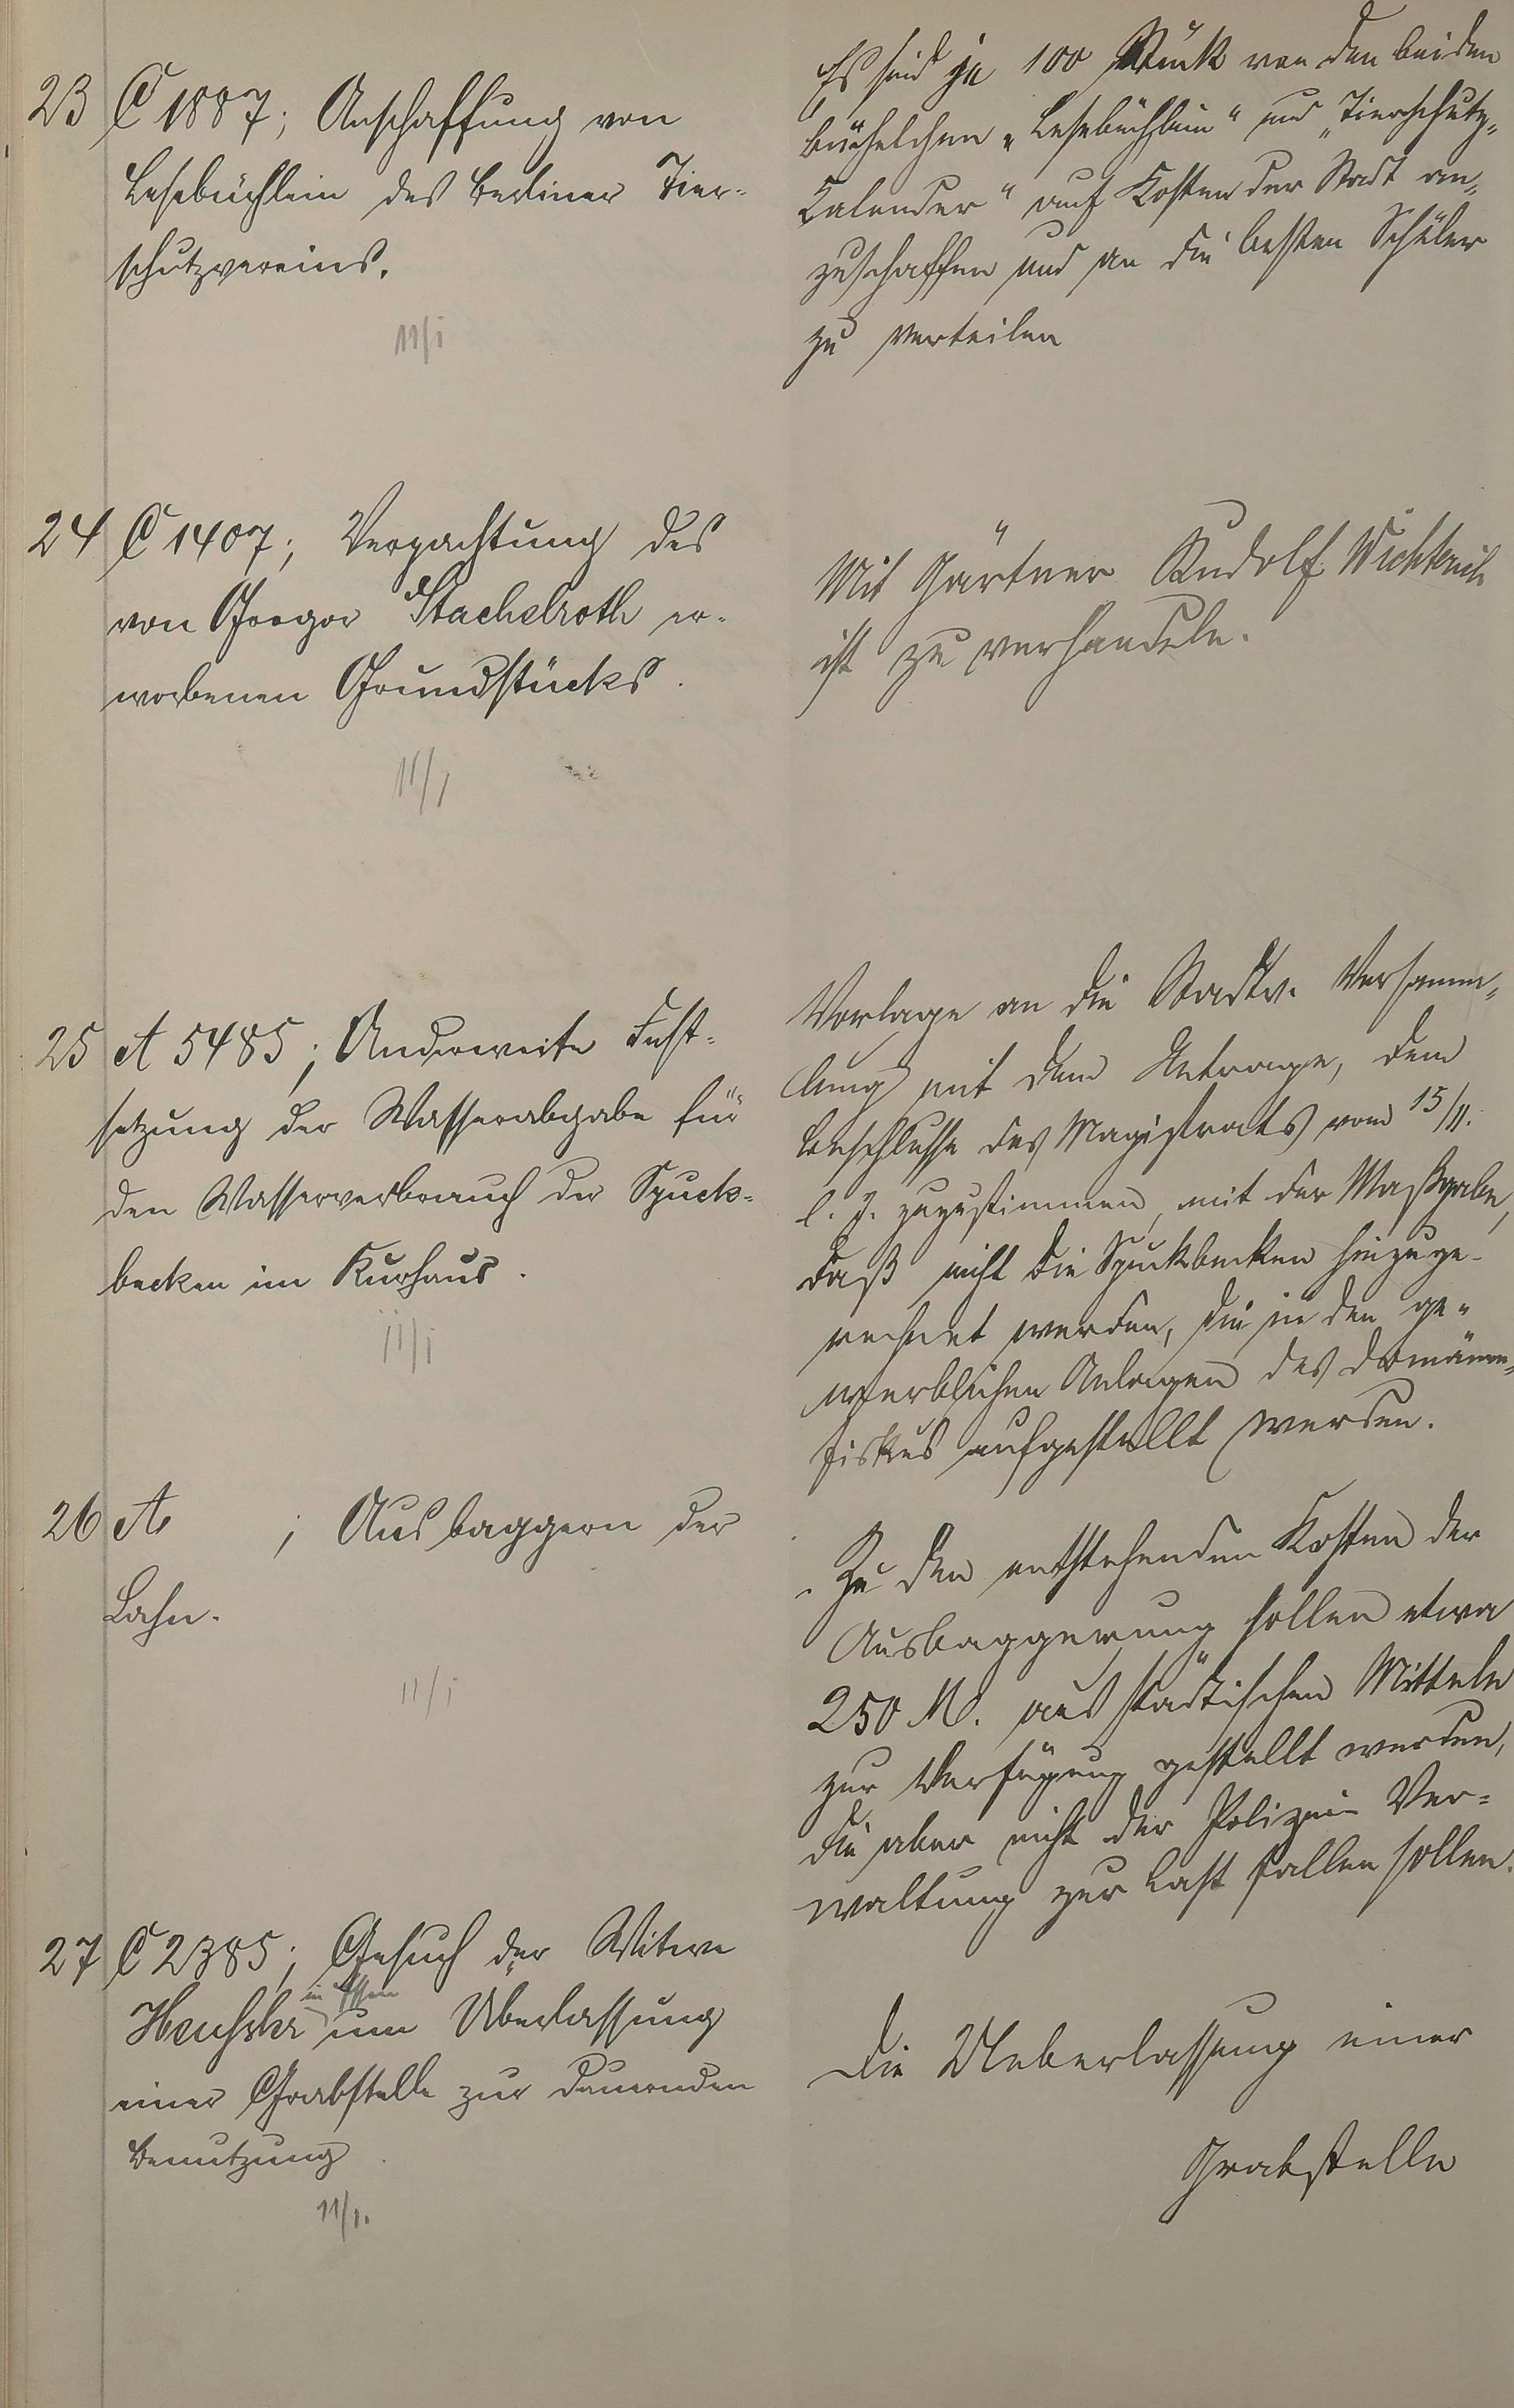 23 C 1887; Anschaffung von
Lesebüchlein des Berliner Tier-
schutzvereins.
11/I
Es sind je 100 Stück von den beiden
Büchelchen „Lesebüchlein" und „Tierschutz-
Kalender" auf Kosten der Stadt an-
zuschaffen und an die besten Schüler
zu verteilen
24 C 1407; Verpachtung des
von Gregor Stachelroth er-
worbenen Grundstücks.
11/I
Mit Gärtner Rudolf Wichterich
ist zu verhandeln.
25 A 5485; Anderweite Fest-
setzung der Wasserabgabe für
den Wasserverbrauch der Spuck-
becken im Kurhaus.
11/I
Vorlage an die Stadtv. Versamm-
lung mit dem Antrage, dem
Beschlusse des Magistrats vom 15/11.
l. J. zuzustimmen, mit der Maßgabe,
daß nicht die Spuckbecken hinzuge-
rechnet werden, die in den ge-
werblichen Anlagen des Domänen-
fiskus aufgestellt werden.
26 A ; Ausbaggern der
Lahn.
11/I
Zu den entstehenden Kosten der
Ausbaggerung sollen etwa
250 M. aus städtischen Mitteln
zur Verfügung gestellt werden,
die aber nicht der Polizei-Ver-
waltung zur Last fallen sollen.
27 C 2385; Gesuch der Witwe
in Essen
um Überlassung
einer Grabstelle zur dauernden
Benutzung.
11/I.
Die Ueberlassung einer
Grabstelle